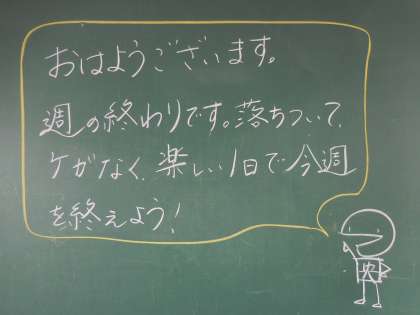 おはようございます。
週の終わりです。落ちついて、
ケがなく、楽しい1日で今週
を終えよう!
央